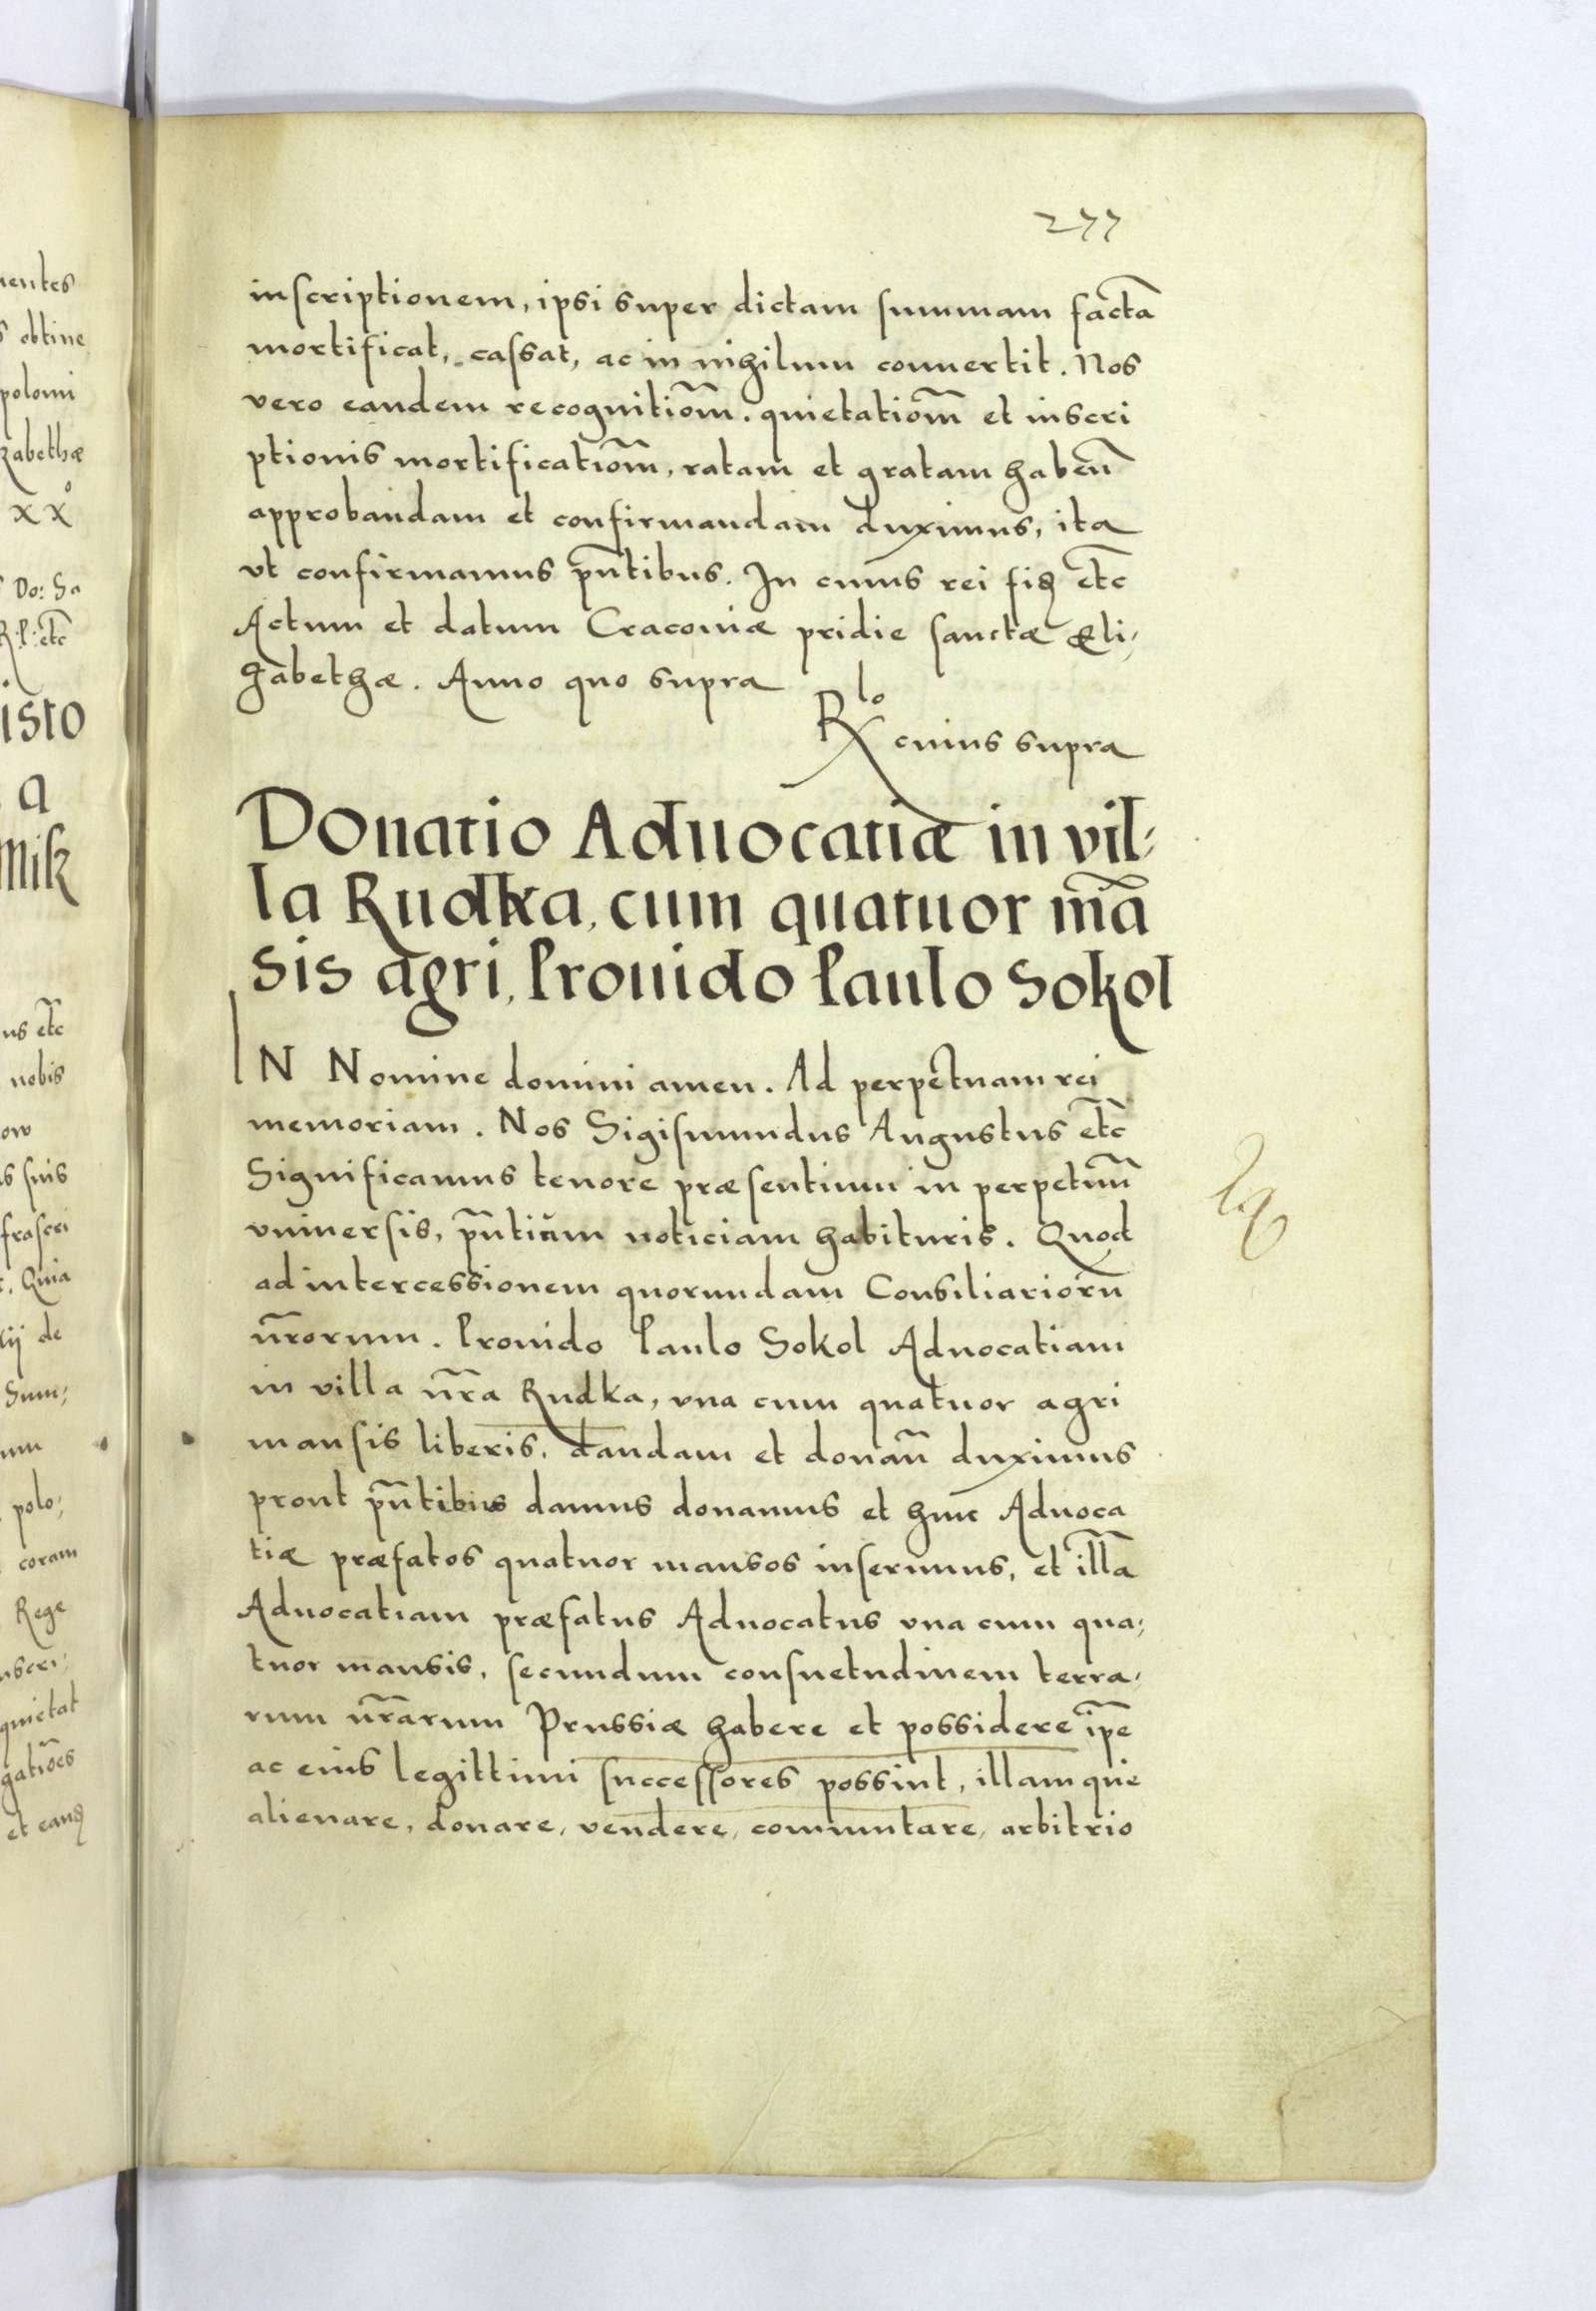 277
inscriptionem, ipsi super dictam summam factā
mortificat, cassat, ac in nihilum conuertit. Nos
vero eandem recognitiōm. quietatiōm et inscri
ptionis mortificatiōm, ratam et gratam habeñ
approbandam et confirmandam duximus, ita
vt confirmamus pñtibus. In cuius rei fiꝫ etc̄
Actum et datum Cracouiæ pridie sanctæ Eli,
habethæ. Anno quo supra
Rlo cuius supra
Donatio Aduocatiæ in vil,
la Rudka, cum quatuor mā
sis agri, Prouido Paulo Sokol
IN Nomine domini amen. Ad perpetuam rei
memoriam. Nos Sigismundus Augustus etc̄
Significamus tenore præsentium in perpetuū
vniuersis, pñtium noticiam habituris. Quod
ad intercessionem quorundam Consiliariorū
nr̄orum. Prouido Paulo Sokol Aduocatiam
in villa nr̄a Rudka, vna cum quatuor agri
mansis liberis, dandam et donañ duximus
prout pñtibus damus donamus et huic Aduoca
tiæ præfatos quatuor mansos inserimus, et illā
Aduocatiam præfatus Aduocatus vna cum qua,
tuor mansis, secundum consuetudinem terra,
rum nr̄arum Prussiæ habere et possidere ip̄e
ac eius legittimi successores possint, illamque
alienare, donare, vendere, commutare, arbitrio
obtine
polom
zabethæ
xx°
Do: Sa
R: P: etc̄
isto
a
Misk
us etc̄
nobis
ow
s suis
frascri
. Quia
ij de
Sum,
um
polo,
coram
Rege
nscri,
quietat
gatiōes
et eanꝫ